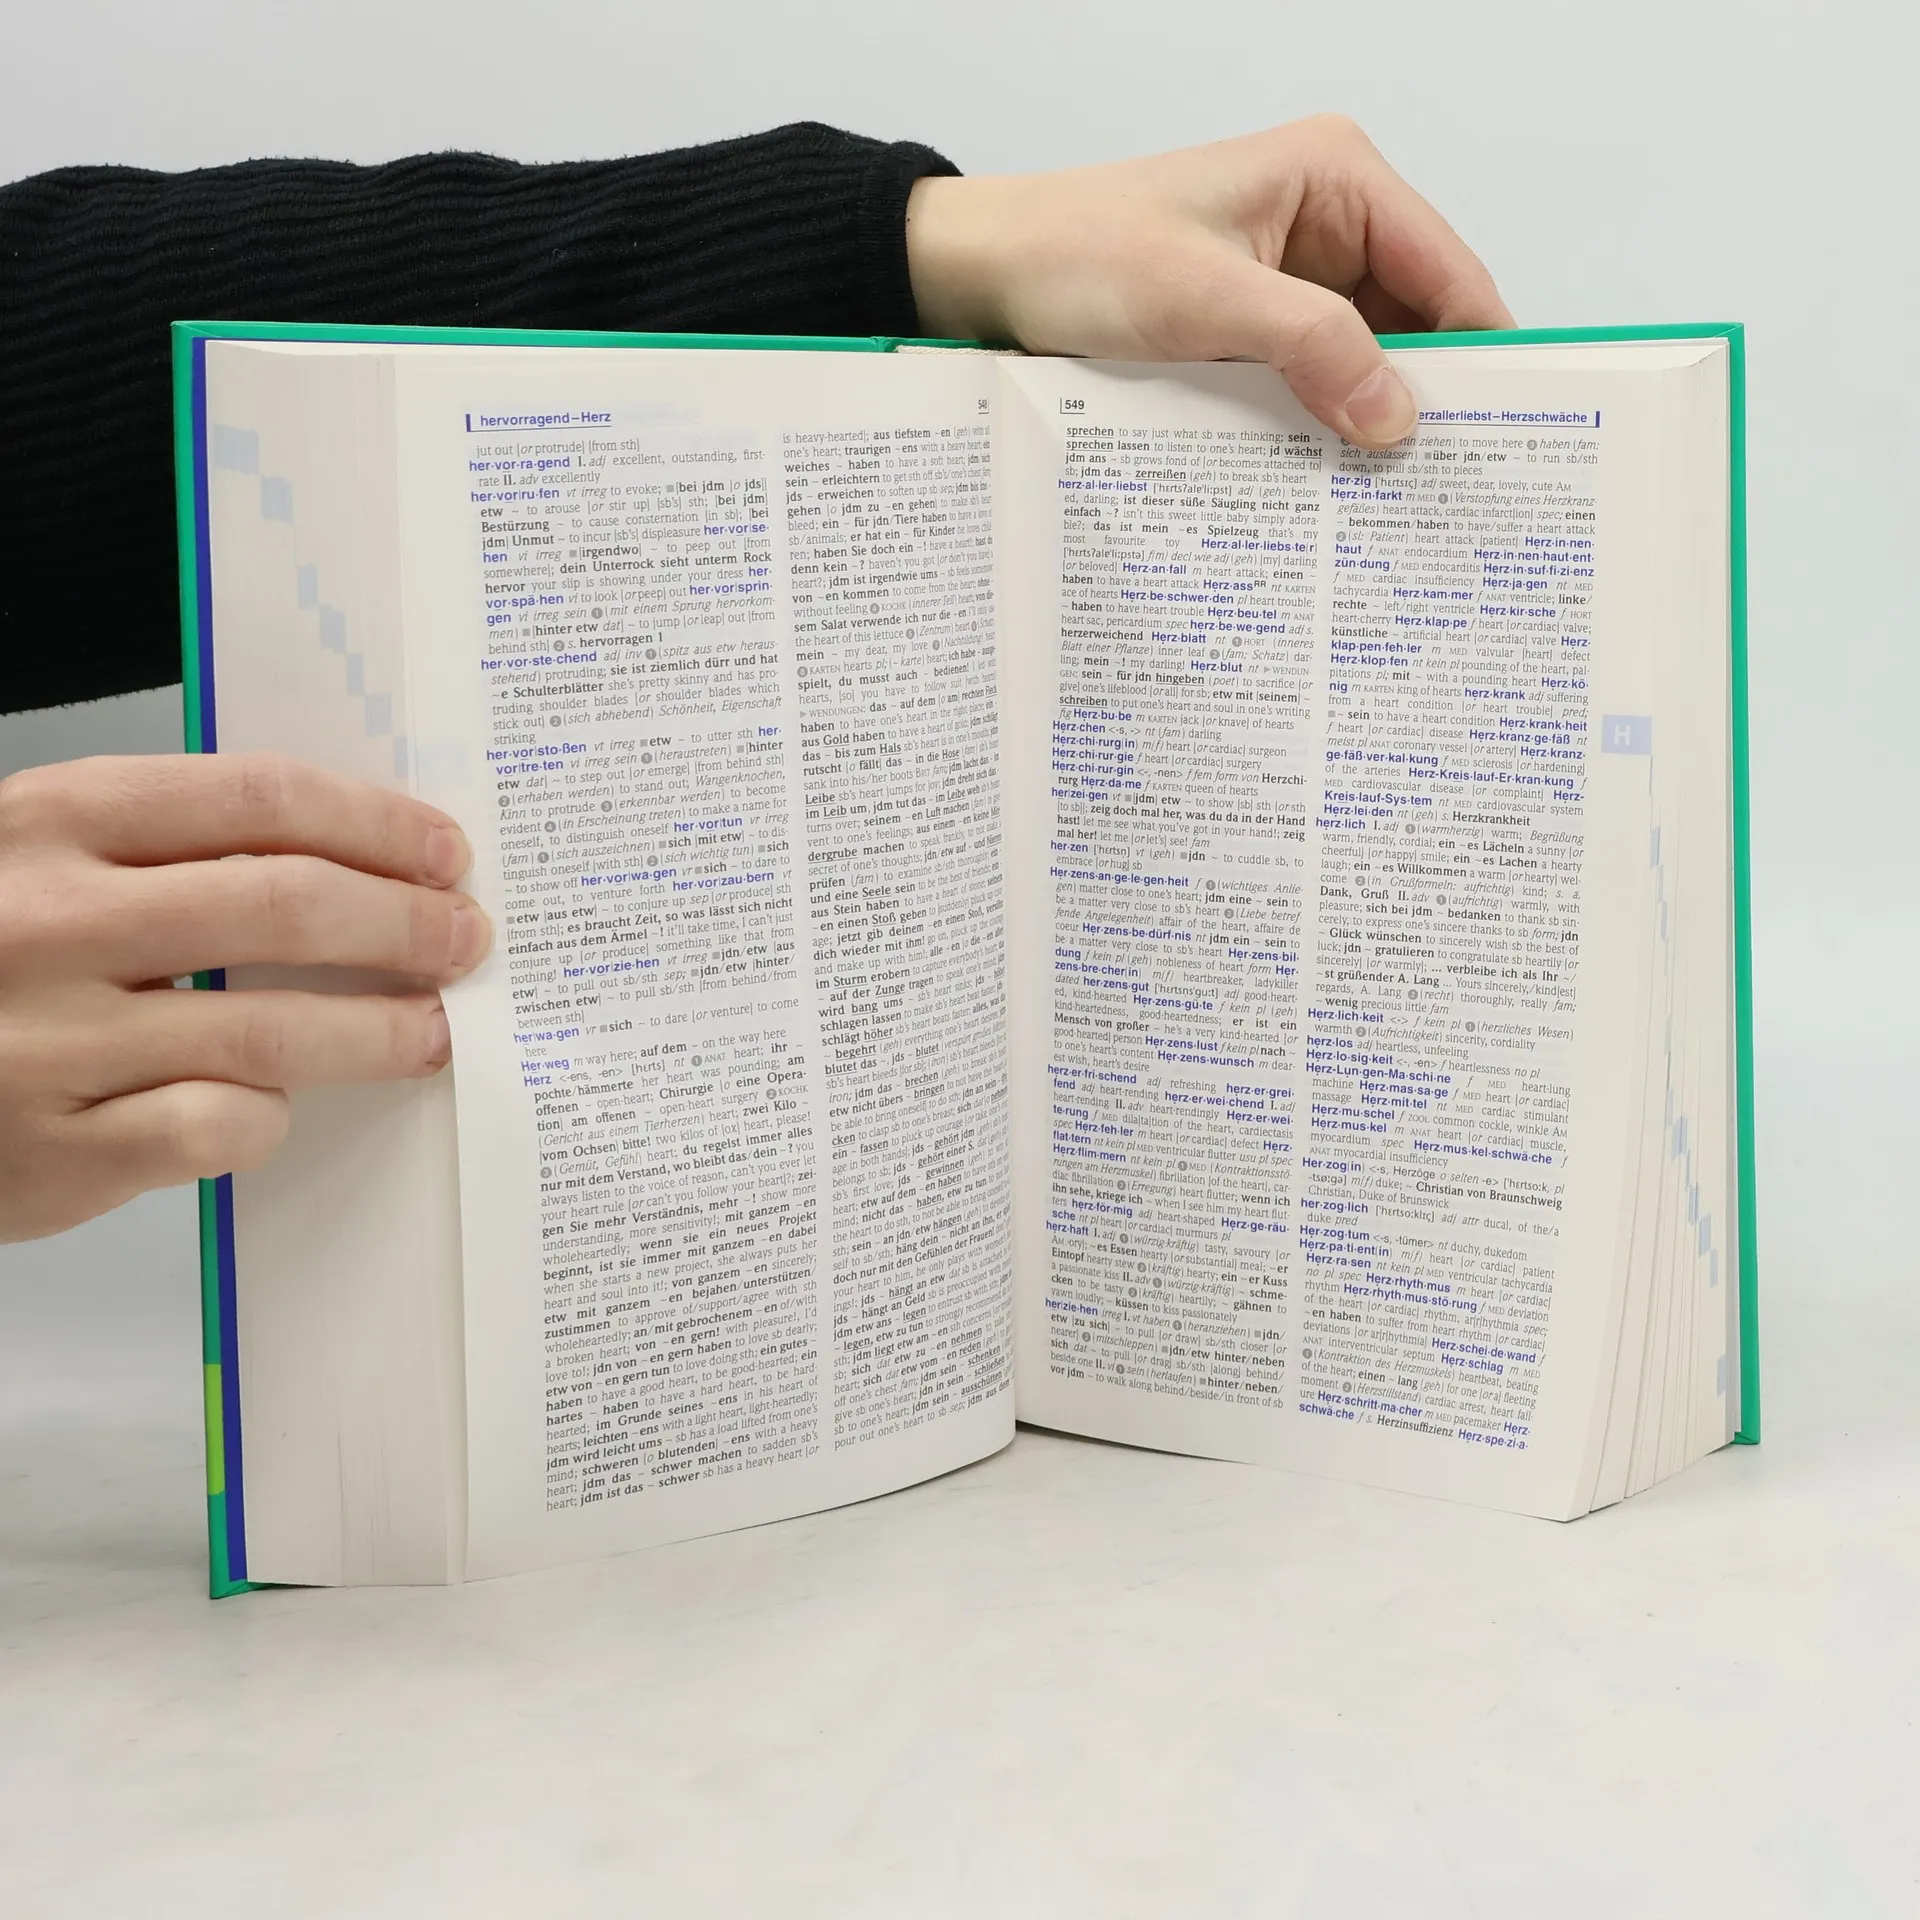 hervorragend–Herz
548
jut out [or protrude] [from sth]
her·vor·ra·gend I. adj excellent, outstanding, first-
rate II. adv excellently
her·vor|ru·fen vt irreg to evoke; ■[bei jdm [o jds]]
etw ~ to arouse [or stir up] [sb's] sth; [bei jdm]
Bestürzung ~ to cause consternation [in sb]; [bei
jdm] Unmut ~ to incur [sb's] displeasure her·vor|se-
hen vi irreg ■[irgendwo] ~ to peep out [from
somewhere]; dein Unterrock sieht unterm Rock
hervor your slip is showing under your dress her-
vor·spä·hen vi to look [or peep] out her·vor|sprin-
gen vi irreg sein ❶ (mit einem Sprung hervorkom-
men) ■[hinter etw dat] ~ to jump [or leap] out [from
behind sth] ❷ s. hervorragen 1
her·vor·ste·chend adj inv ❶ (spitz aus etw heraus-
stehend) protruding; sie ist ziemlich dürr und hat
~e Schulterblätter she's pretty skinny and has pro-
truding shoulder blades [or shoulder blades which
stick out] ❷ (sich abhebend) Schönheit, Eigenschaft
striking
her·vor|sto·ßen vt irreg ■etw ~ to utter sth her-
vor|tre·ten vi irreg sein ❶ (heraustreten) ■[hinter
etw dat] ~ to step out [or emerge] [from behind sth]
❷ (erhaben werden) to stand out; Wangenknochen,
Kinn to protrude ❸ (erkennbar werden) to become
evident ❹ (in Erscheinung treten) to make a name for
oneself, to distinguish oneself her·vor|tun vr irreg
(fam) ❶ (sich auszeichnen) ■sich [mit etw] ~ to dis-
tinguish oneself [with sth] ❷ (sich wichtig tun) ■sich
~ to show off her·vor|wa·gen vr ■sich ~ to dare to
come out, to venture forth her·vor|zau·bern vt
■etw [aus etw] ~ to conjure up sep [or produce] sth
[from sth]; es braucht Zeit, so was lässt sich nicht
einfach aus dem Ärmel ~! it'll take time, I can't just
conjure up [or produce] something like that from
nothing! her·vor|zie·hen vt irreg ■jdn/etw [aus
etw] ~ to pull out sb/sth sep; ■jdn/etw [hinter/
zwischen etw] ~ to pull sb/sth [from behind/from
between sth]
her|wa·gen vr ■sich ~ to dare [or venture] to come
here
Her·weg m way here; auf dem ~ on the way here
Herz <-ens, -en> [hɛrts] nt ❶ ANAT heart; ihr ~
pochte/hämmerte her heart was pounding; am
offenen ~ open-heart; Chirurgie [o eine Opera-
tion] am offenen ~ open-heart surgery ❷ KOCHK
(Gericht aus einem Tierherzen) heart; zwei Kilo ~
[vom Ochsen] bitte! two kilos of [ox] heart, please!
❸ (Gemüt, Gefühl) heart; du regelst immer alles
nur mit dem Verstand, wo bleibt das/dein ~? you
always listen to the voice of reason, can't you ever let
your heart rule [or can't you follow your heart]?; zei-
gen Sie mehr Verständnis, mehr ~! show more
understanding, more sensitivity!; mit ganzem ~en
wholeheartedly; wenn sie ein neues Projekt
beginnt, ist sie immer mit ganzem ~en dabei
when she starts a new project, she always puts her
heart and soul into it!; von ganzem ~en sincerely;
etw mit ganzem ~en bejahen/unterstützen/
zustimmen to approve of/support/agree with sth
wholeheartedly; an/mit gebrochenem ~en of/with
a broken heart; von ~en gern! with pleasure!, I'd
love to!; jdn von ~en gern haben to love sb dearly;
etw von ~en gern tun to love doing sth; ein gutes ~
haben to have a good heart, to be good-hearted; ein
hartes ~ haben to have a hard heart, to be hard-
hearted; im Grunde seines ~ens in his heart of
hearts; leichten ~ens with a light heart, light-heartedly;
jdm wird leicht ums ~ sb has a load lifted from one's
mind; schweren [o blutenden] ~ens with a heavy
heart; jdm das ~ schwer machen to sadden sb's
heart; jdm ist das ~ schwer sb has a heavy heart [or
is heavy-hearted]; aus tiefstem ~en (geh) with all
one's heart; traurigen ~ens with a heavy heart; ein
weiches ~ haben to have a soft heart; jdm sein
~ erweichen to soften up sb sep; jdm bis ins ~
gehen [o jdm zu ~en gehen] to make sb's heart
bleed; ein ~ für jdn/Tiere haben to have a love of
sb/animals; er hat ein ~ für Kinder he loves child-
ren; haben Sie doch ein ~! have a heart!; hast du
denn kein ~? haven't you got [or don't you have] a
heart?; jdm ist irgendwie ums ~ sb feels somehow
von ~en kommen to come from the heart; ohne ~
without feeling ❹ KOCHK (innerer Teil) heart; von die-
sem Salat verwende ich nur die ~en I'll only use
the heart of this lettuce ❺ (Zentrum) heart ❻ (Schatz)
mein ~ my dear, my love ❼ (Nachbildung) heart
❽ KARTEN hearts pl; (~karte) heart; ich habe ~ ausge-
spielt, du musst auch ~ bedienen! I led with
hearts, [so] you have to follow suit [with hearts]
▶ WENDUNGEN: das ~ auf dem [o am] rechten Fleck
haben to have one's heart in the right place; ein ~
aus Gold haben to have a heart of gold; jdm schlägt
das ~ bis zum Hals sb's heart is in one's mouth; jdm
rutscht [o fällt] das ~ in die Hose (fam) sb's heart
sank into his/her boots BRIT fam; jdm lacht das ~ im
Leibe sb's heart jumps for joy; jdm dreht sich das ~
im Leib um, jdm tut das ~ im Leibe weh sb's heart
turns over; seinem ~en Luft machen (fam) to give
vent to one's feelings; aus einem ~en keine Mör-
dergrube machen to speak frankly, to not make a
secret of one's thoughts; jdn/etw auf ~ und Nieren
prüfen (fam) to examine sb/sth thoroughly; ein ~
und eine Seele sein to be the best of friends; ein ~
aus Stein haben to have a heart of stone; seinem
~en einen Stoß geben to [suddenly] pluck up cour-
age; jetzt gib deinem ~en einen Stoß, versöhn
dich wieder mit ihm! go on, pluck up the courage
and make up with him!; alle ~en [o die ~en aller]
im Sturm erobern to capture everybody's heart; das
~ auf der Zunge tragen to speak one's mind; jdm
wird bang ums ~ sb's heart sinks; jds ~ höher
schlagen lassen to make sb's heart beat faster; jds ~
schlägt höher sb's heart beats faster; alles, was das
~ begehrt (geh) everything one's heart desires; jdm
blutet das ~, jds ~ blutet (verspürt großes Mitleid)
sb's heart bleeds [for sb]; (iron) sb's heart bleeds [for sb]
iron; jdm das ~ brechen (geh) to break sb's heart;
etw nicht übers ~ bringen to not have the heart to
be able to bring oneself] to do sth; jdn an sein ~ drü-
cken to clasp sb to one's breast; sich dat ein
~ fassen to pluck up courage [or take one's cour-
age in both hands]; jds ~ gehört jdm (geh) sb's heart
belongs to sb; jds ~ gehört einer S.
sb's first love; jds ~ gewinnen (geh) to win sb's
heart; etw auf dem ~en haben to have sth on one's
mind; nicht das ~ haben, etw zu tun to not have
the heart to do sth, to not be able to bring oneself to do
sth; sein ~ an jdn/etw hängen (geh) to devote one-
self to sb/sth; häng dein ~ nicht an ihn, er spielt
doch nur mit den Gefühlen der Frauen! don't give
your heart to him, he only plays with women's feel-
ings!; jds ~ hängt an etw dat sb is attached to sth
jds ~ hängt an Geld sb is preoccupied with money
jdm etw ans ~ legen to entrust sb with sth;
~ legen, etw zu tun to strongly recommend sb to do
sth; jdm liegt etw am ~en sth concerns sb
sb; sich dat etw zu ~en nehmen to take sth to
heart; sich dat etw vom ~en reden (geh) to get sth
off one's chest fam; jdm sein ~ schenken (geh) to
give sb one's heart; jdn in sein ~ schließen to take
sb to one's heart; jdm sein ~ ausschütten (geh) to
pour out one's heart to sb sep; jdm aus dem ~
549
erzallerliebst–Herzschwäche
sprechen to say just what sb was thinking; sein ~
sprechen lassen to listen to one's heart; jd wächst
jdm ans ~ sb grows fond of [or becomes attached to]
sb; jdm das ~ zerreißen (geh) to break sb's heart
herz·al·ler·liebst ['hɛrtsʔale'li:pst] adj (geh) belov-
ed, darling; ist dieser süße Säugling nicht ganz
einfach ~? isn't this sweet little baby simply adora-
ble?; das ist mein ~es Spielzeug that's my
most favourite toy Herz·al·ler·liebs·te(r)
['hɛrtsʔale'li:pstə] f(m) decl wie adj (geh) [my] darling
[or beloved] Herz·an·fall m heart attack; einen ~
haben to have a heart attack Herz·assRR nt KARTEN
ace of hearts Herz·be·schwer·den pl heart trouble;
~ haben to have heart trouble Herz·beu·tel m ANAT
heart sac, pericardium spec herz·be·we·gend adj s.
herzerweichend Herz·blatt nt ❶ HORT (inneres
Blatt einer Pflanze) inner leaf ❷ (fam: Schatz) dar-
ling; mein ~! my darling! Herz·blut nt ▶ WENDUN-
GEN: sein ~ für jdn hingeben (poet) to sacrifice [or
give] one's lifeblood [or all] for sb; etw mit [seinem] ~
schreiben to put one's heart and soul in one's writing
fig Herz·bu·be m KARTEN jack [or knave] of hearts
Herz·chen <-s, -> nt (fam) darling
Herz·chi·rurg(in) m(f) heart [or cardiac] surgeon
Herz·chi·rur·gie f heart [or cardiac] surgery
Herz·chi·rur·gin <-, -nen> f fem form von Herzchi-
rurg Herz·da·me f KARTEN queen of hearts
her|zei·gen vt ■[jdm] etw ~ to show [sb] sth [or sth
[to sb]]; zeig doch mal her, was du da in der Hand
hast! let me see what you've got in your hand!; zeig
mal her! let me [or let's] see! fam
her·zen ['hɛrtsn̩] vt (geh) ■jdn ~ to cuddle sb, to
embrace [or hug] sb
Her·zens·an·ge·le·gen·heit f ❶ (wichtiges Anlie-
gen) matter close to one's heart; jdm eine ~ sein to
be a matter very close to sb's heart ❷ (Liebe betref-
fende Angelegenheit) affair of the heart, affaire de
coeur Her·zens·be·dürf·nis nt jdm ein ~ sein to
be a matter very close to sb's heart Her·zens·bil-
dung f kein pl (geh) nobleness of heart form Her-
zens·bre·cher(in) m(f) heartbreaker, ladykiller
dated her·zens·gut ['hɛrtsn̩s'gu:t] adj good-heart-
ed, kind-hearted Her·zens·gü·te f kein pl (geh)
kind-heartedness, good-heartedness; er ist ein
Mensch von großer ~ he's a very kind-hearted [or
good-hearted] person Her·zens·lust f kein pl nach ~
to one's heart's content Her·zens·wunsch m dear-
est wish, heart's desire
herz·er·fri·schend adj refreshing herz·er·grei-
fend adj heart-rending herz·er·wei·chend I. adj
heart-rending II. adv heart-rendingly Herz·er·wei-
te·rung f MED dila[ta]tion of the heart, cardiectasis
spec Herz·feh·ler m heart [or cardiac] defect Herz-
flat·tern nt kein pl MED ventricular flutter usu pl spec
Herz·flim·mern nt kein pl ❶ MED (Kontraktionsstö-
rungen am Herzmuskel) fibrillation [of the heart], car-
diac fibrillation ❷ (Erregung) heart flutter; wenn ich
ihn sehe, kriege ich ~ when I see him my heart flut-
ters herz·för·mig adj heart-shaped Herz·ge·räu-
sche nt pl heart [or cardiac] murmurs pl
herz·haft I. adj ❶ (würzig-kräftig) tasty, savoury [or
AM -ory]; ~es Essen hearty [or substantial] meal; ~er
Eintopf hearty stew ❷ (kräftig) hearty; ein ~er Kuss
a passionate kiss II. adv ❶ (würzig-kräftig) ~ schme-
cken to be tasty ❷ (kräftig) heartily; ~ gähnen to
yawn loudly; ~ küssen to kiss passionately
her|zie·hen irreg I. vt haben ❶ (heranziehen) ■jdn/
etw [zu sich] ~ to pull [or draw] sb/sth closer [or
nearer] ❷ (mitschleppen) ■jdn/etw hinter/neben
sich dat ~ to pull [or drag] sb/sth [along] behind/
beside one II. vi ❶ sein (herlaufen) ■hinter/neben/
vor jdm ~ to walk along behind/beside/in front of sb
hin ziehen) to move here ❸ haben (fam:
sich auslassen) ■über jdn/etw ~ to run sb/sth
down, to pull sb/sth to pieces
her·zig ['hɛrtsɪç] adj sweet, dear, lovely, cute AM
Herz·in·farkt m MED ❶ (Verstopfung eines Herzkranz-
gefäßes) heart attack, cardiac infarct[ion] spec; einen
~ bekommen/haben to have/suffer a heart attack
❷ (sl: Patient) heart attack [patient] Herz·in·nen-
haut f ANAT endocardium Herz·in·nen·haut·ent-
zün·dung f MED endocarditis Herz·in·suf·fi·zi·enz
f MED cardiac insufficiency Herz·ja·gen nt MED
tachycardia Herz·kam·mer f ANAT ventricle; linke/
rechte ~ left/right ventricle Herz·kir·sche f HORT
heart-cherry Herz·klap·pe f heart [or cardiac] valve;
künstliche ~ artificial heart [or cardiac] valve Herz-
klap·pen·feh·ler m MED valvular [heart] defect
Herz·klop·fen nt kein pl pounding of the heart, pal-
pitations pl; mit ~ with a pounding heart Herz·kö-
nig m KARTEN king of hearts herz·krank adj suffering
from a heart condition [or heart trouble] pred;
■~ sein to have a heart condition Herz·krank·heit
f heart [or cardiac] disease Herz·kranz·ge·fäß nt
meist pl ANAT coronary vessel [or artery] Herz·kranz-
ge·fäß·ver·kal·kung f MED sclerosis [or hardening]
of the arteries Herz-Kreis·lauf-Er·kran·kung f
MED cardiovascular disease [or complaint] Herz-
Kreis·lauf-Sys·tem nt MED cardiovascular system
Herz·lei·den nt (geh) s. Herzkrankheit
herz·lich I. adj ❶ (warmherzig) warm; Begrüßung
warm, friendly, cordial; ein ~es Lächeln a sunny [or
cheerful] [or happy] smile; ein ~es Lachen a hearty
laugh; ein ~es Willkommen a warm [or hearty] wel-
come ❷ (in Grußformeln: aufrichtig) kind; s. a.
Dank, Gruß II. adv ❶ (aufrichtig) warmly, with
pleasure; sich bei jdm ~ bedanken to thank sb sin-
cerely, to express one's sincere thanks to sb form; jdn
~ Glück wünschen to sincerely wish sb the best of
luck; jdn ~ gratulieren to congratulate sb heartily [or
sincerely] [or warmly]; ... verbleibe ich als Ihr ~/
~st grüßender A. Lang ... Yours sincerely,/kind[est]
regards, A. Lang ❷ (recht) thoroughly, really fam;
~ wenig precious little fam
Herz·lich·keit <-> f kein pl ❶ (herzliches Wesen)
warmth ❷ (Aufrichtigkeit) sincerity, cordiality
herz·los adj heartless, unfeeling
Herz·lo·sig·keit <-, -en> f heartlessness no pl
Herz-Lun·gen-Ma·schi·ne f MED heart-lung
machine Herz·mas·sa·ge f MED heart [or cardiac]
massage Herz·mit·tel nt MED cardiac stimulant
Herz·mu·schel f ZOOL common cockle, winkle AM
Herz·mus·kel m ANAT heart [or cardiac] muscle,
myocardium spec Herz·mus·kel·schwä·che f
ANAT myocardial insufficiency
Her·zog(in) <-s, Herzöge o selten -e> ['hɛrtso:k, pl
-tsø:gə] m(f) duke; ~ Christian von Braunschweig
Christian, Duke of Brunswick
her·zog·lich ['hɛrtso:klɪç] adj attr ducal, of the/a
duke pred
Her·zog·tum <-s, -tümer> nt duchy, dukedom
Herz·pa·ti·ent(in) m(f) heart [or cardiac] patient
Herz·ra·sen nt kein pl MED ventricular tachycardia
no pl spec Herz·rhyth·mus m heart [or cardiac]
rhythm Herz·rhyth·mus·stö·rung f MED deviation
of the heart [or cardiac] rhythm, ar[r]hythmia spec;
~en haben to suffer from heart rhythm [or cardiac]
deviations [or ar[r]hythmia] Herz·schei·de·wand f
ANAT interventricular septum Herz·schlag m MED
❶ (Kontraktion des Herzmuskels) heartbeat, beating
of the heart; einen ~ lang (geh) for one [or a] fleeting
moment ❷ (Herzstillstand) cardiac arrest, heart fail-
ure Herz·schritt·ma·cher m MED pacemaker Herz-
schwä·che f s. Herzinsuffizienz Herz·spe·zi·a-
H